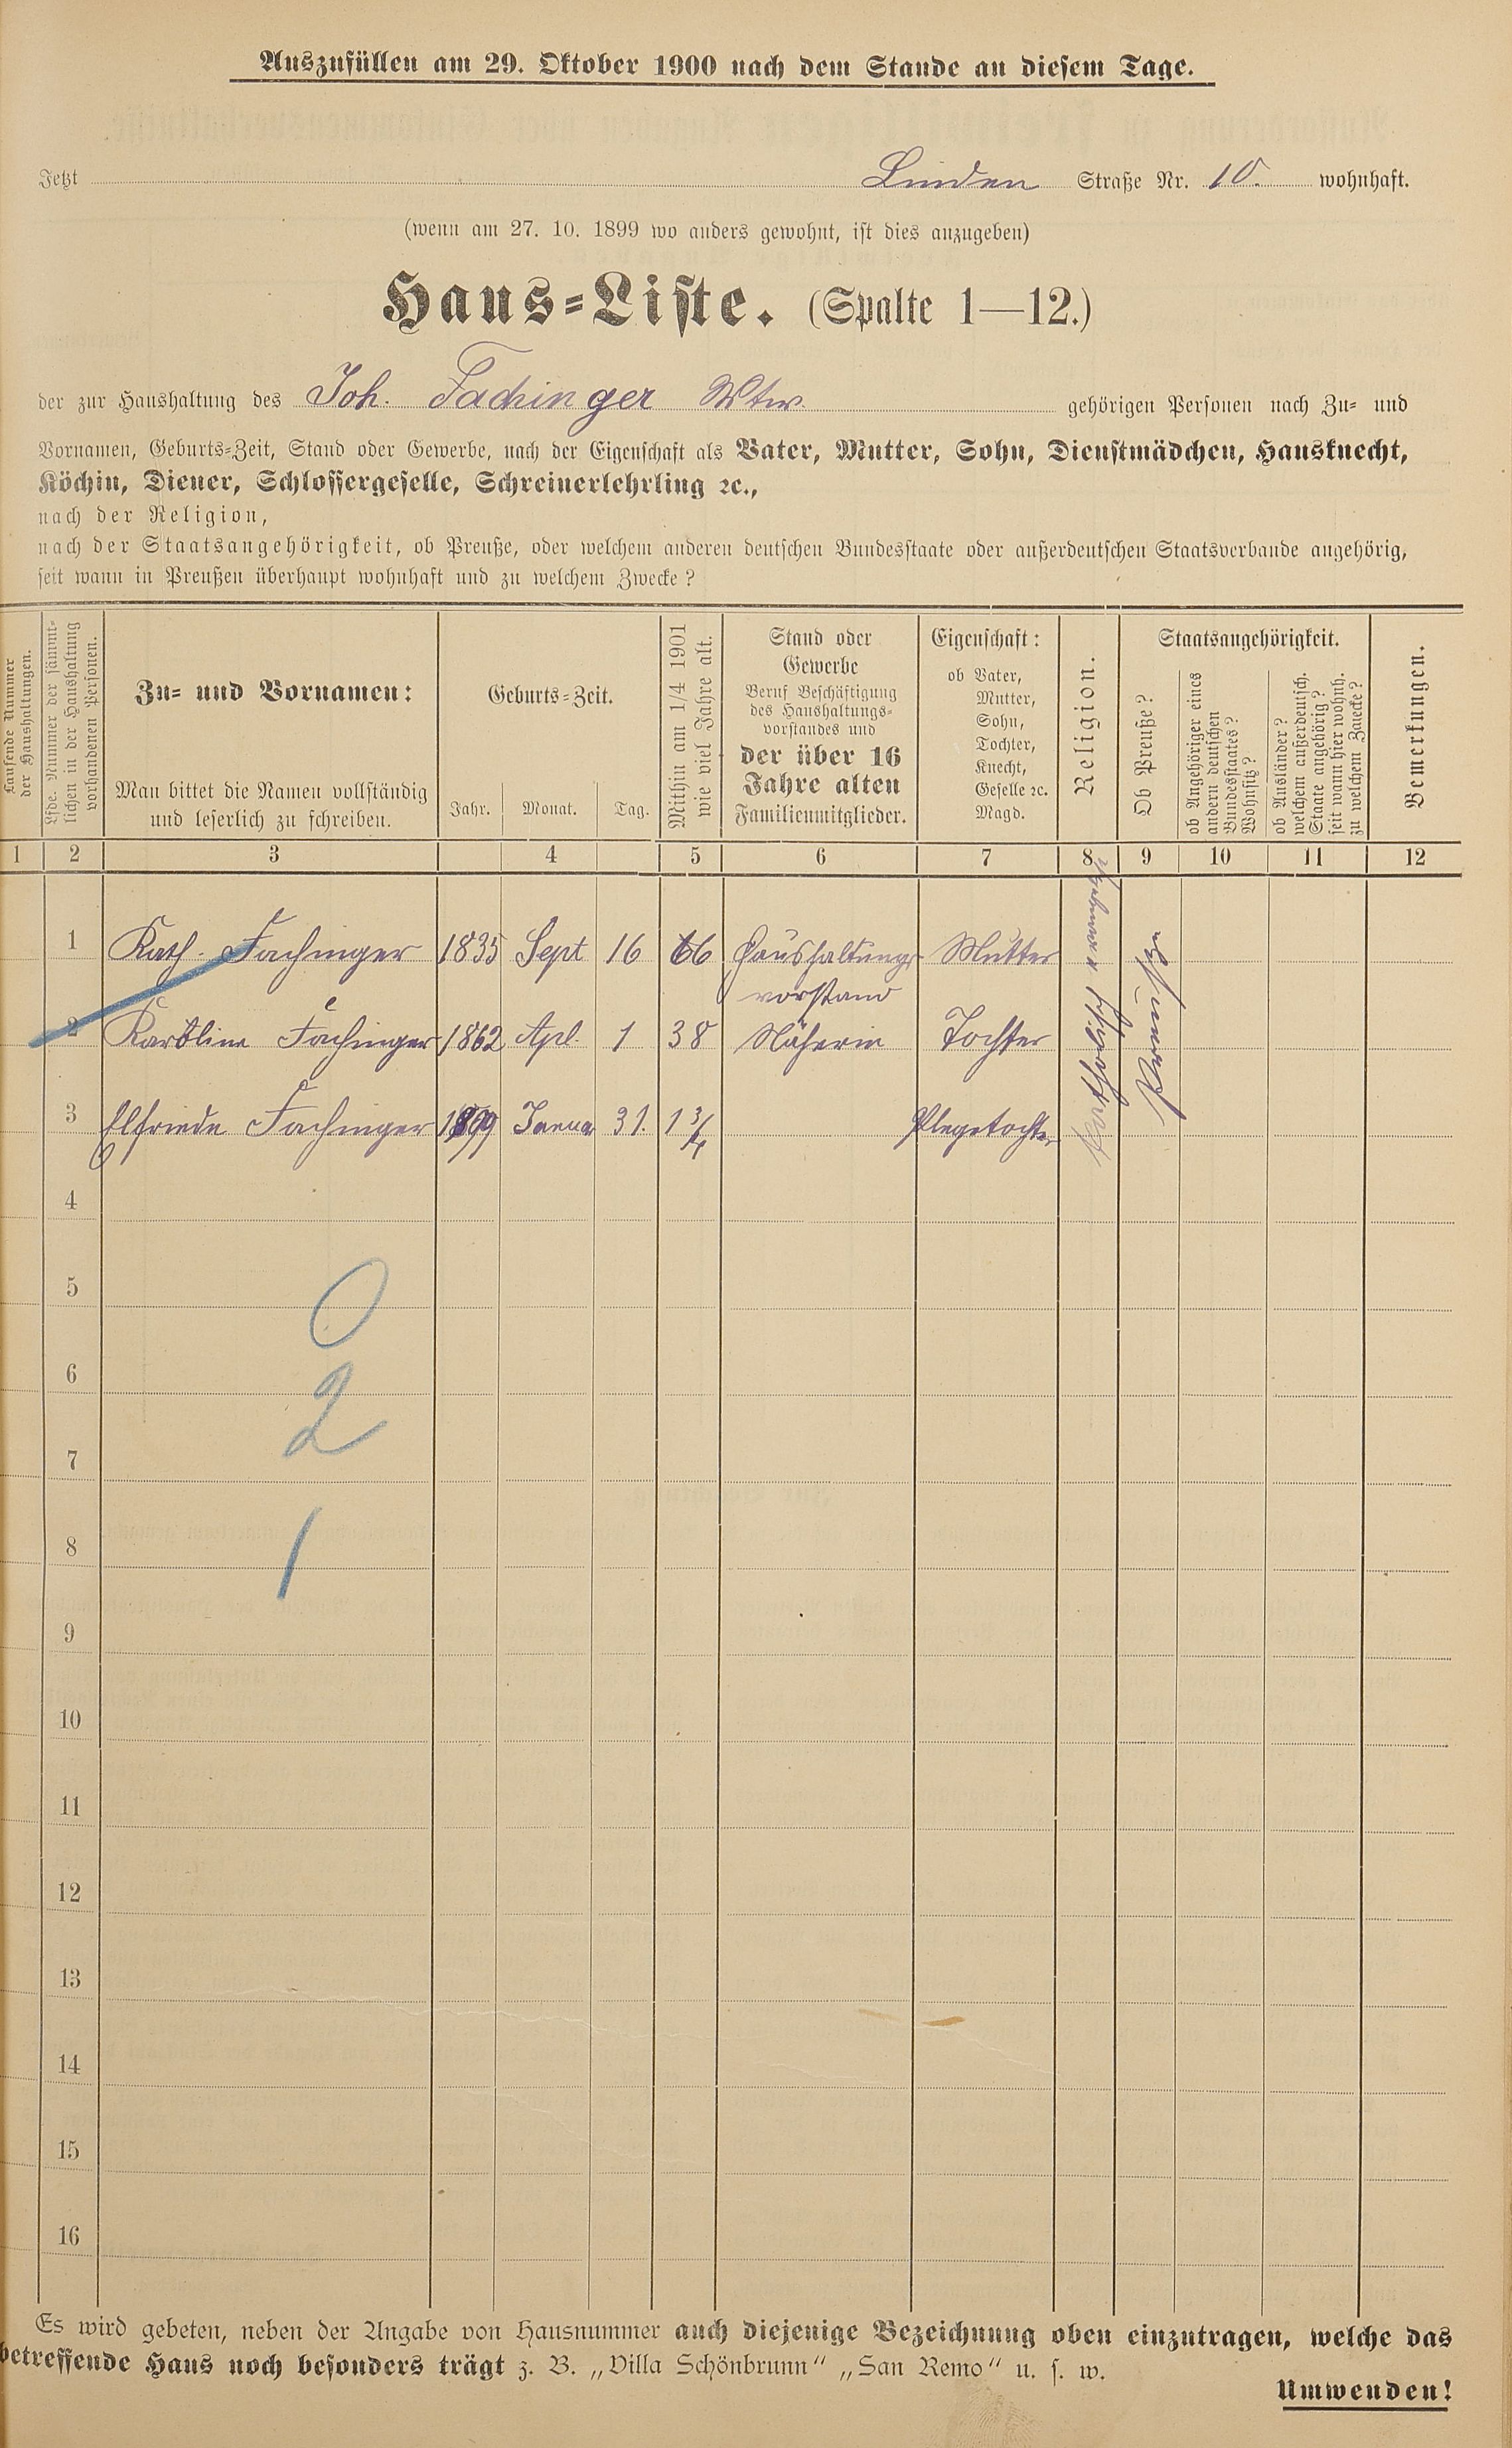 Auszufüllen am 29. Oktober 1900 nach dem Stande an diesem Tage.
Jetzt Linden Straße Nr. 10. wohnhaft.
(wenn am 27. 10. 1899 wo anders gewohnt, ist dies anzugeben)
Haus-Liste. (Spalte 1—12.)
der zur Haushaltung des Joh. Fachinger Wtw. gehörigen Personen nach Zu- und
Vornamen, Geburts-Zeit, Stand oder Gewerbe, nach der Eigenschaft als Vater, Mutter, Sohn, Dienstmädchen, Hausknecht,
Köchin, Diener, Schlossergeselle, Schreinerlehrling ꝛc.,
nach der Religion,
nach der Staatsangehörigkeit, ob Preuße, oder welchem anderen deutschen Bundesstaate oder außerdeutschen Staatsverbande angehörig,
seit wann in Preußen überhaupt wohnhaft und zu welchem Zwecke?
Laufende Nummer
der Haushaltungen.
Lfde. Nummer der sämmt-
lichen in der Haushaltung
vorhandenen Personen.
Zu- und Vornamen:
Man bittet die Namen vollständig
und leserlich zu schreiben.
Geburts-Zeit.
Jahr. Monat. Tag.
Mithin am 1/4 1901
wie viel Jahre alt.
Stand oder
Gewerbe
Beruf Beschäftigung
des Haushaltungs-
vorstandes und
der über 16
Jahre alten
Familienmitglieder.
Eigenschaft:
ob Vater,
Mutter,
Sohn,
Tochter,
Knecht,
Geselle ꝛc.
Magd.
Religion.
Staatsangehörigkeit.
Ob Preuße?
ob Angehöriger eines
andern deutschen
Bundesstaates?
Wohnsitz?
ob Ausländer?
welchem außerdeutsch.
Staate angehörig?
seit wann hier wohnh.
zu welchem Zwecke?
Bemerkungen.
1 2 3 4 5 6 7 8 9 10 11 12
1 Kath. Fachinger 1835 Sept 16 66 Haushaltungs- Mutter
vorstand
2 Karoline Fachinger 1862 Apl. 1 38 Näherin Tochter
3 Elfriede Fachinger 1899 Janua 31. 1 3/4 Plegetochter
Preuße
4
5
0
6
2
7
8
1
9
10
11
12
13
14
15
16
Es wird gebeten, neben der Angabe von Hausnummer auch diejenige Bezeichnung oben einzutragen, welche das
betreffende Haus noch besonders trägt z. B. „Villa Schönbrunn“ „San Remo“ u. s. w.
Umwenden!